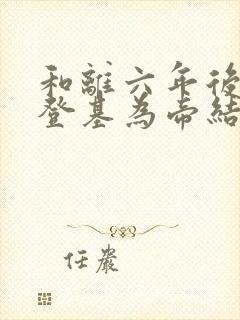 和離六年後
登基為帝結
任嚴